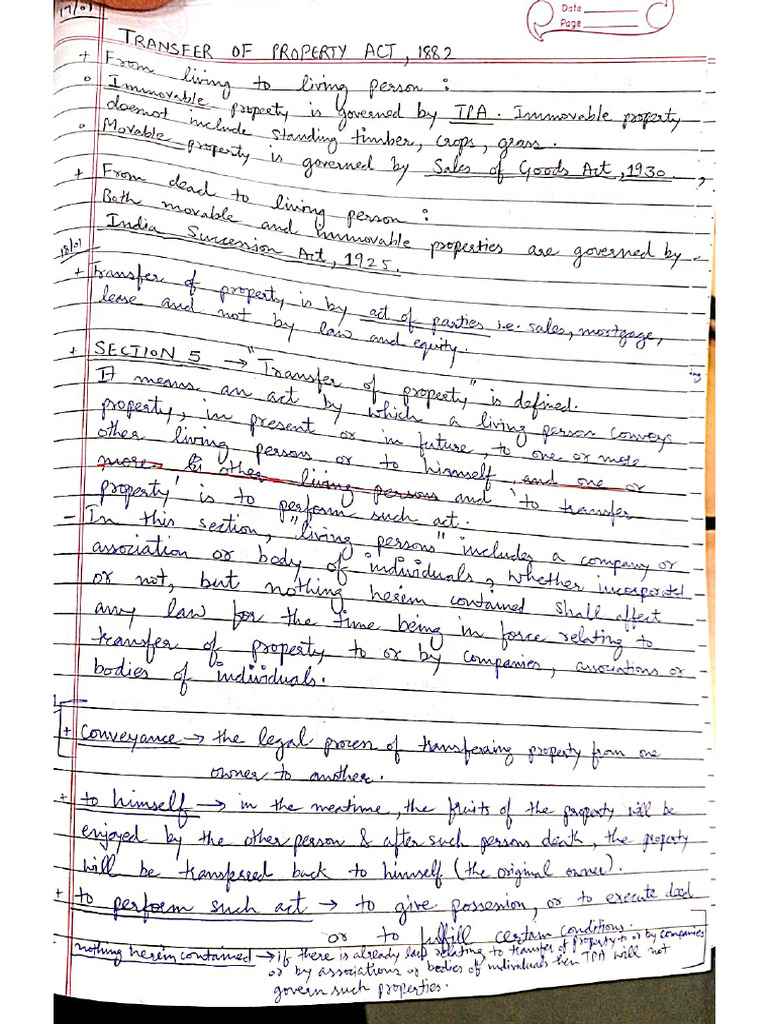 17/01
Date
Page
TRANSFER OF PROPERTY ACT, 1882
+ From living to living person :
o Immovable property is governed by TPA. Immovable property
doesnot include standing timber, crops, grass.
o Movable property is governed by Sales of Goods Act, 1930. ,
+ From dead to living person :
Both movable and immovable properties are governed by -
India Succession Act, 1925.
18/01
+ Transfer of property is by act of parties i.e. sales, mortgage,
lease and not by law and equity.
+ SECTION 5 → "Transfer of property" is defined.
It means an act by which a living person conveys
property, in present or in future, to one or more
other living persons or to himself, and one or
more to other living persons and 'to transfer
property' is to perform such act.
- In this section, "living persons" includes a company or
association or body of individuals, whether incorporated
or not, but nothing herein contained shall affect
any law for the time being in force relating to
transfer of property to or by companies, associations or
bodies of individuals.
+ Conveyance → the legal process of transfering property from one
owner to another.
+ to himself → in the meatime, the fruits of the property will be
enjoyed by the other person & after such persons death, the property
will be transferred back to himself (the original owner).
+ to perform such act → to give possession, or to execute deed
or to fulfill certain conditions.
nothing herein contained → if there is already law relating to transfer of property to or by companies
or by associations or bodies of individuals then TPA will not
govern such properties.